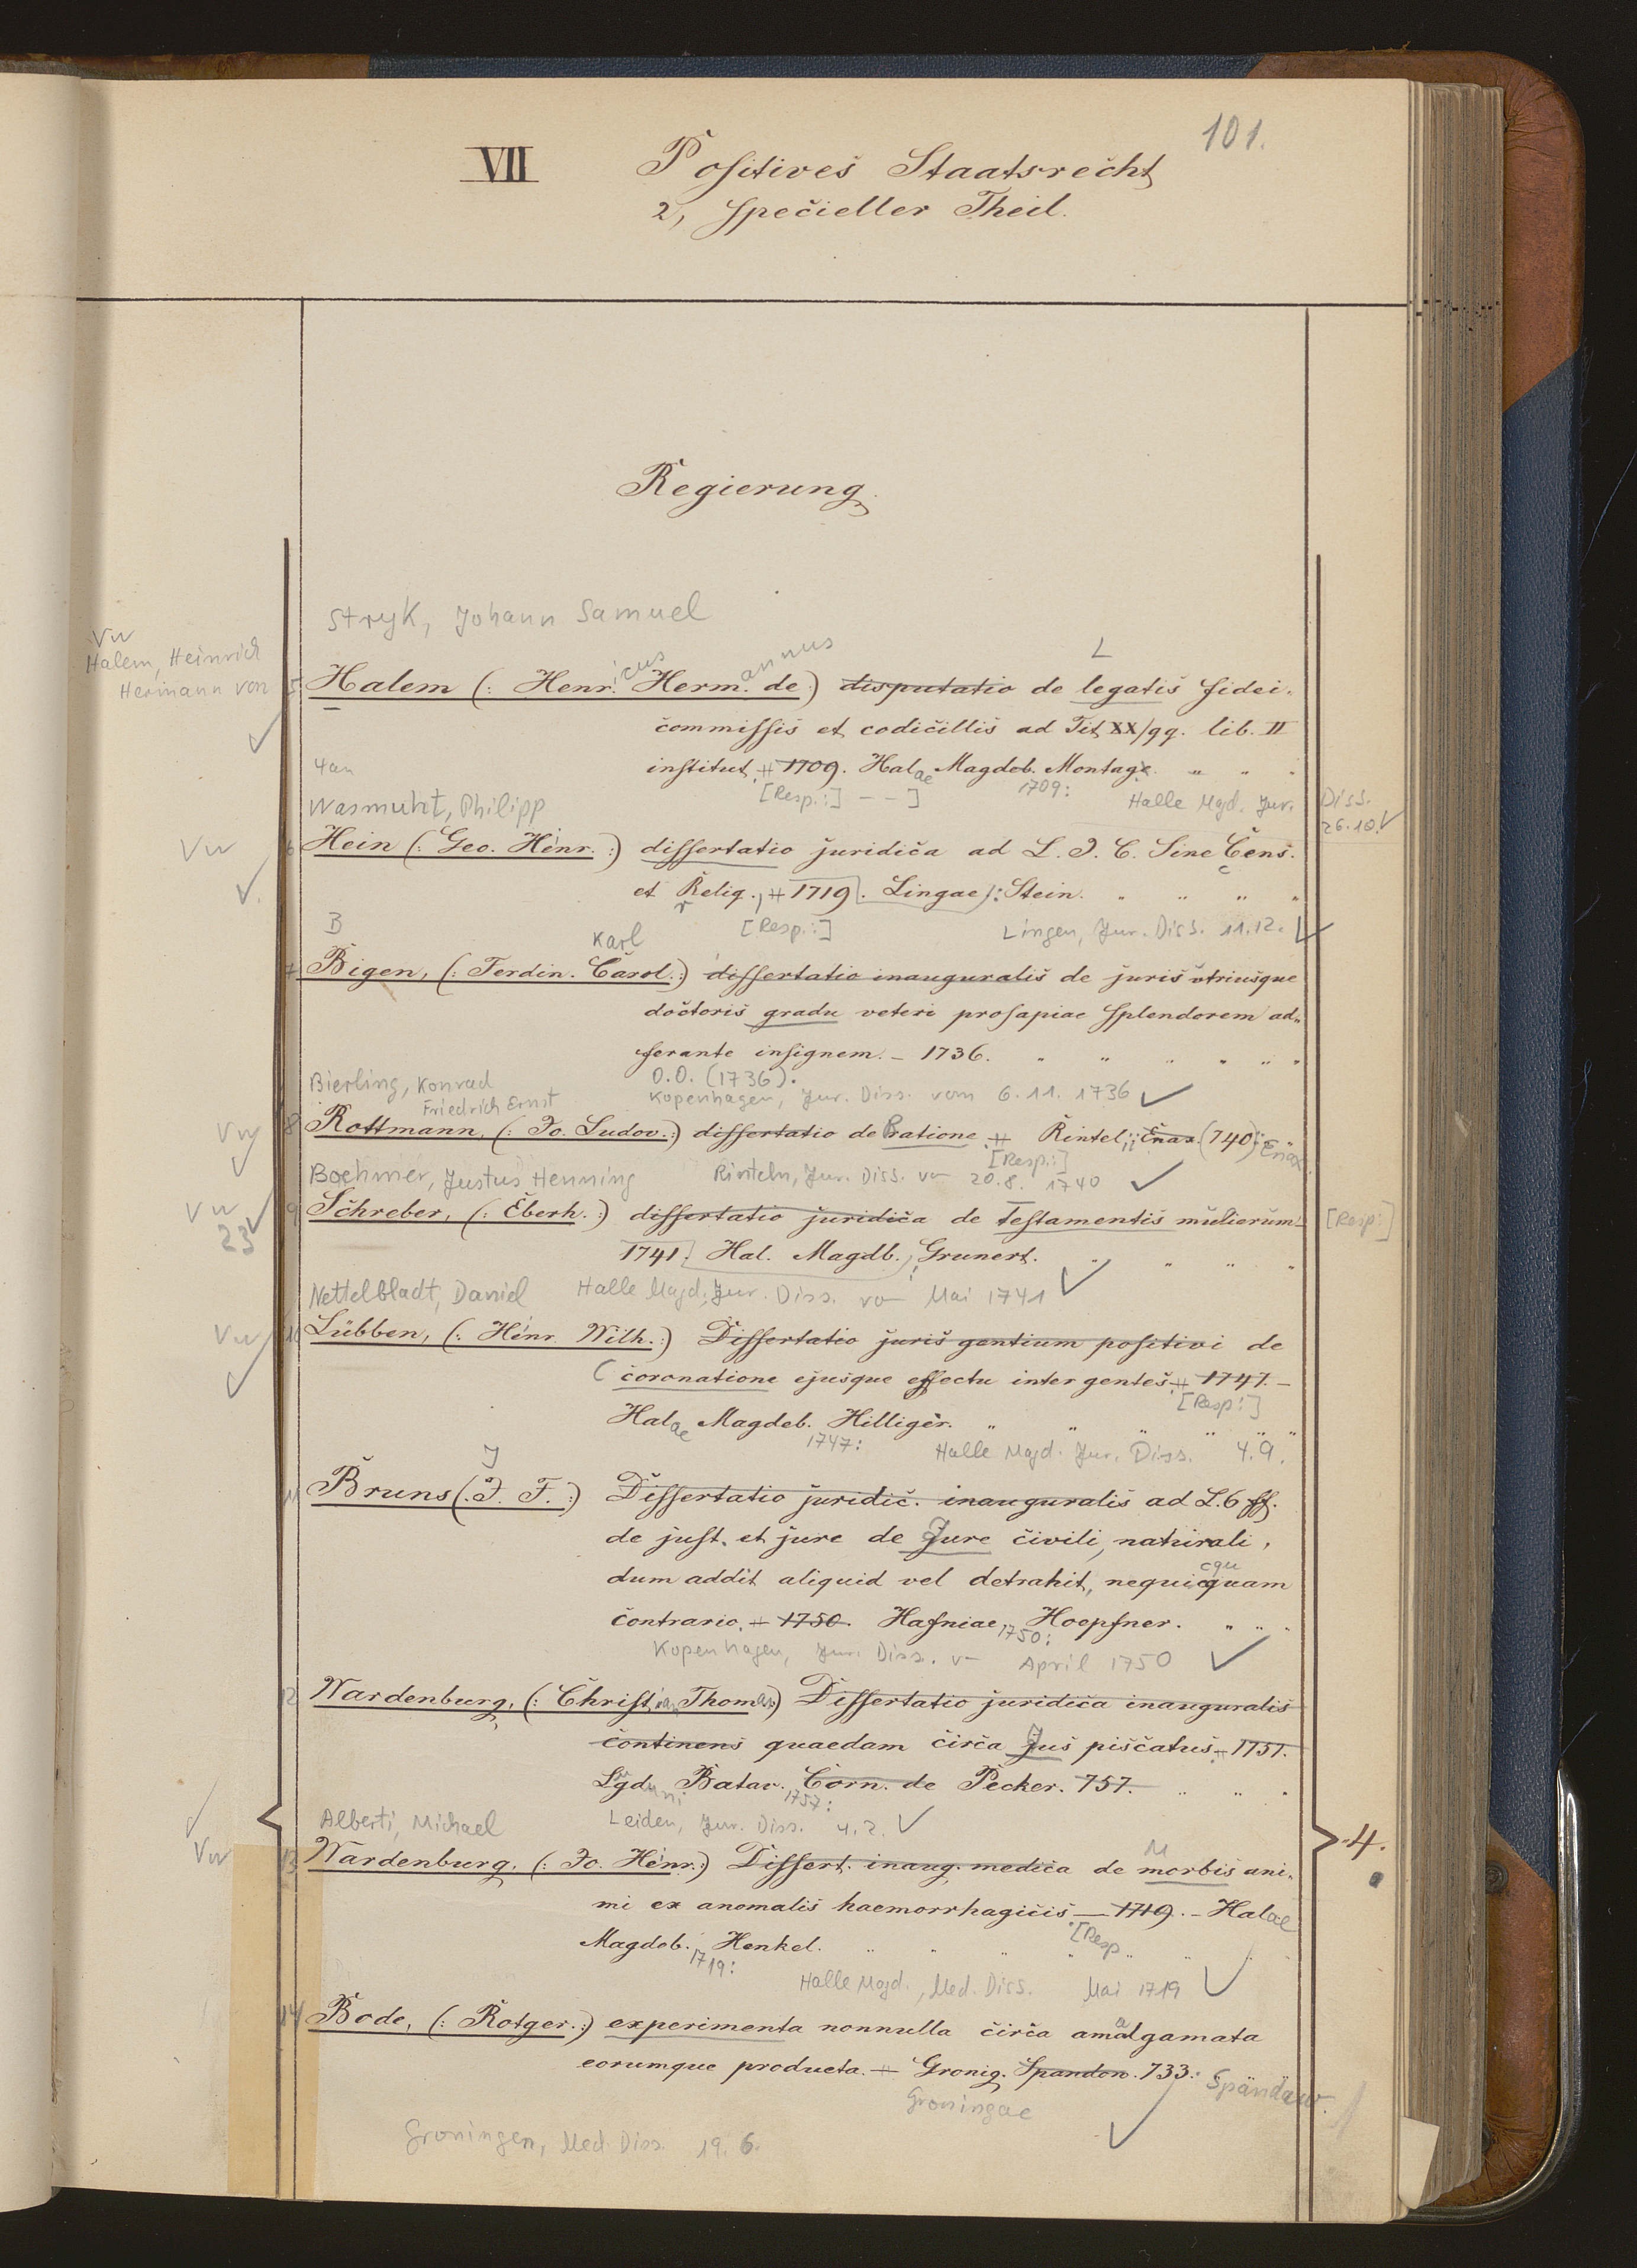 101.
VII Positives Staatsrecht
2, specieller Theil.
Regierung.
Stryk, Johann Samuel
Vw
Halem, Heinrich
Hermann von
5 Halem (: Henr.icus Herm.annus de :) disputatio de legatis fidei-
L
commissis et codicillis ad Tit XX sqq. lib. II
institut. 1709. Halae Magdeb. Montag. " " "
4an [Resp.:] - - ] 1709: Halle Magd. Jur. Diss.
26.10.
Wasmuht, Philipp
Vw 6 Hein (: Geo. Henr. :) dissertatio juridica ad L. I. C. Sine Cens.
c
et Relig., 1719. Lingae): Stein. " " " "
r
B [Resp.:] Lingen, Jur. Diss. 11.12.
Karl
7 Bigen, (: Ferdin. Carol. :) dissertatio inauguralis de juris utriusque
doctoris gradu veteri prosapiae splendorem ad-
ferante insignem. - 1736. " " " " " "
O.O. (1736).
Bierling, Konrad
Friedrich Ernst
Kopenhagen, Jur. Diss. vom 6.11.1736
Vw 8 Rottmann, (: Jo. Ludov. :) dissertatio de Ratione Rintel; Enax (740): Enax.
[Resp.:]
Boehmer, Justus Henning Rinteln, Jur. Diss. v 20.8. 1740
Vw 9 Schreber, (: Eberh. :) dissertatio juridica de Testamentis mulierum - [Resp:]
23
1741. Hal. Magdb., Grunert. " " " "
Nettelbladt, Daniel Halle Magd., Jur. Diss. vo Mai 1741
Vw 10 Lübben, (: Henr. Wilh. :) Dissertatio juris gentium positivi de
C coronatione ejusque effectu inter gentes. 1747. -
[Resp:]
Halae Magdeb. Hilliger. " " " " "
1747: Halle Magd. Jur. Diss. 4.9.
J
11 Bruns (: J. F. :) Dissertatio juridic. inauguralis ad L. 6 ff.
de just. et jure de Jure civili, naturali,
dum addit aliquid vel detrahit, nequicquam
cqu
contrario. 1750. Hafniae, Hoepfner. " " "
1750:
Kopenhagen, Jur. Diss. v April 1750
12 Wardenburg, (: Christian Thomas :) Dissertatio juridica inauguralis
continens quaedam circa Jus piscatus. 1757.
Lugduni Batav. Corn. de Pecker. 757. " " "
1757:
Alberti, Michael Leiden, Jur. Diss. 4.2.
Vw 13 Wardenburg, (: Jo. Henr. :) Dissert. inaug. medica de morbis ani- -4.
M
mi ex anomalis haemorrhagicis — 1719. - Halae
[Resp.
Magdeb. Henkel. " " " " " "
1719:
Halle Magd., Med. Diss. Mai 1719
14 Bode, (: Rotger. :) experimenta nonnulla circa amalgamata
a
eorumque producta. Gronig. Spandon. 733. Spändaw.
Groningae
Groningen, Med. Diss. 19.6.